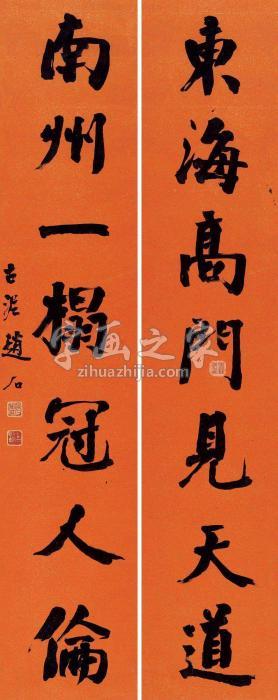 東海高門見天道
南州一榻冠人倫
古泥趙石
字画之家
zihuazhijia.com